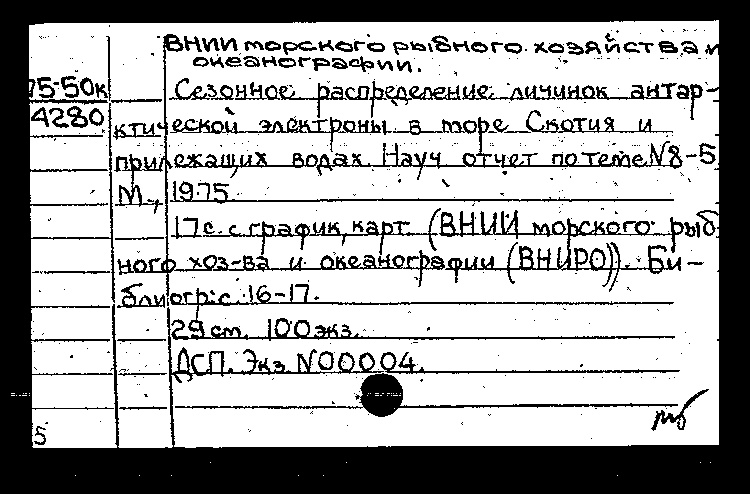 ВНИИ морского рыбного хозяйства и
океанографии.
75-50к
Сезонное распределение личинок антар-
4280
ктической электроны в море Скотия и
прилежащих водах. Науч отчет по теме N8-5
М., 1975.
17с. с график, карт. (ВНИИ морского рыб-
ного хоз-ва и океанографии (ВНИРО)). Би-
блиогр: с. 16-17.
29 см. 100 экз.
ДСП. Экз. N00004.
5